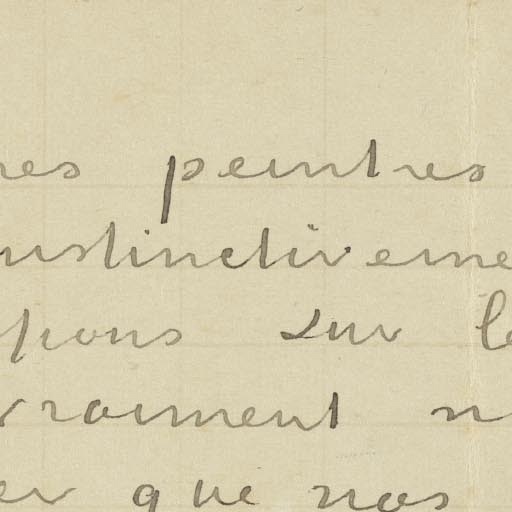 res peintres
instinctiveme
pons sur le
vraiment n
er que nos